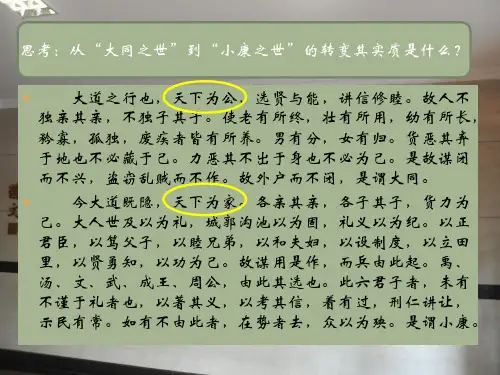 思考：从“大同之世”到“小康之世”的转变其实质是什么？
大道之行也，天下为公，选贤与能，讲信修睦。故人不
独亲其亲，不独子其子。使老有所终，壮有所用，幼有所长，
矜寡，孤独，废疾者皆有所养。男有分，女有归。货恶其弃
于地也不必藏于己。力恶其不出于身也不必为己。是故谋闭
而不兴，盗窃乱贼而不作。故外户而不闭，是谓大同。
今大道既隐，天下为家，各亲其亲，各子其子，货力为
己。大人世及以为礼，城郭沟池以为固，礼义以为纪。以正
君臣，以笃父子，以睦兄弟，以和夫妇，以设制度，以立田
里，以贤勇知，以功为己。故谋用是作，而兵由此起。禹、
汤、文、武、成王、周公，由此其选也。此六君子者，未有
不谨于礼者也，以著其义，以考其信，著有过，刑仁讲让，
示民有常。如有不由此者，在势者去，众以为殃。是谓小康。